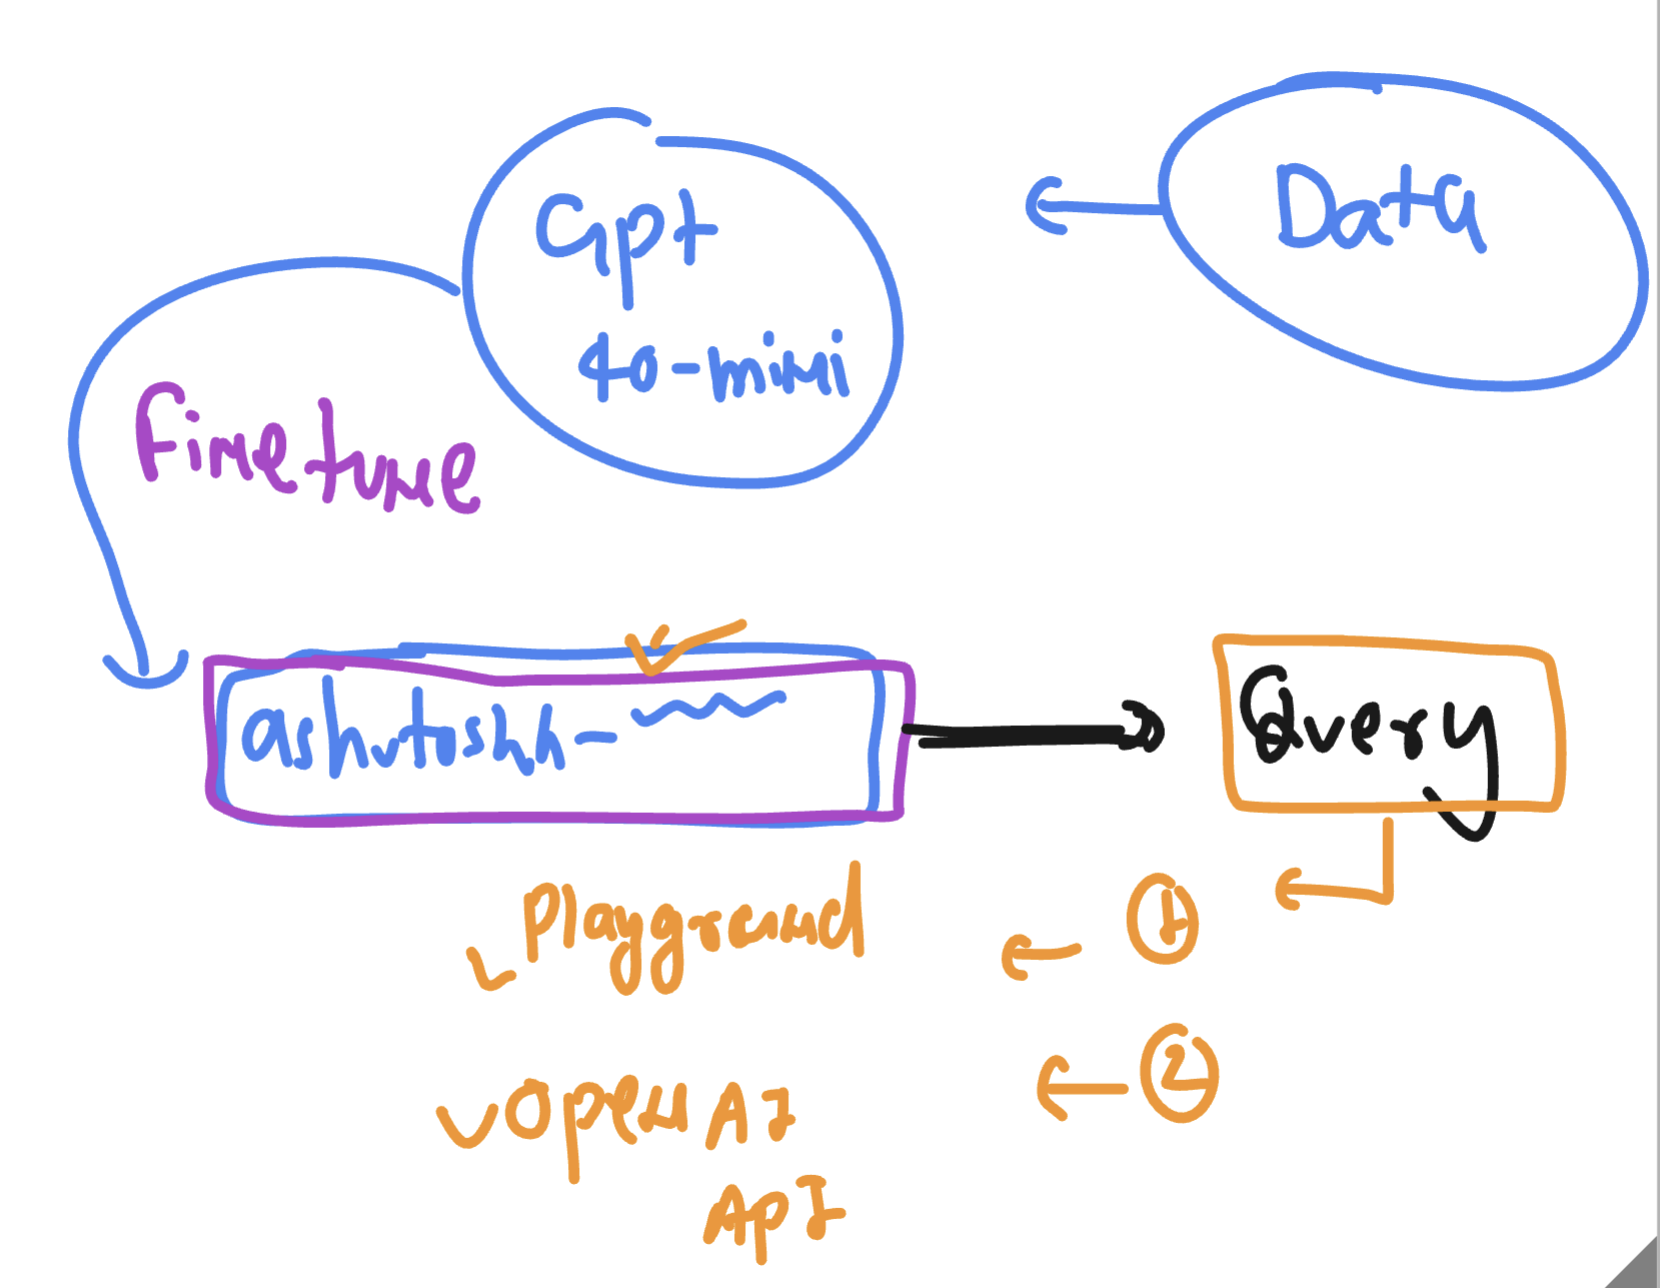 Gpt
4o-mini
Data
Finetune
ashutoshh-
Query
Playground
1
2
Open AI
API